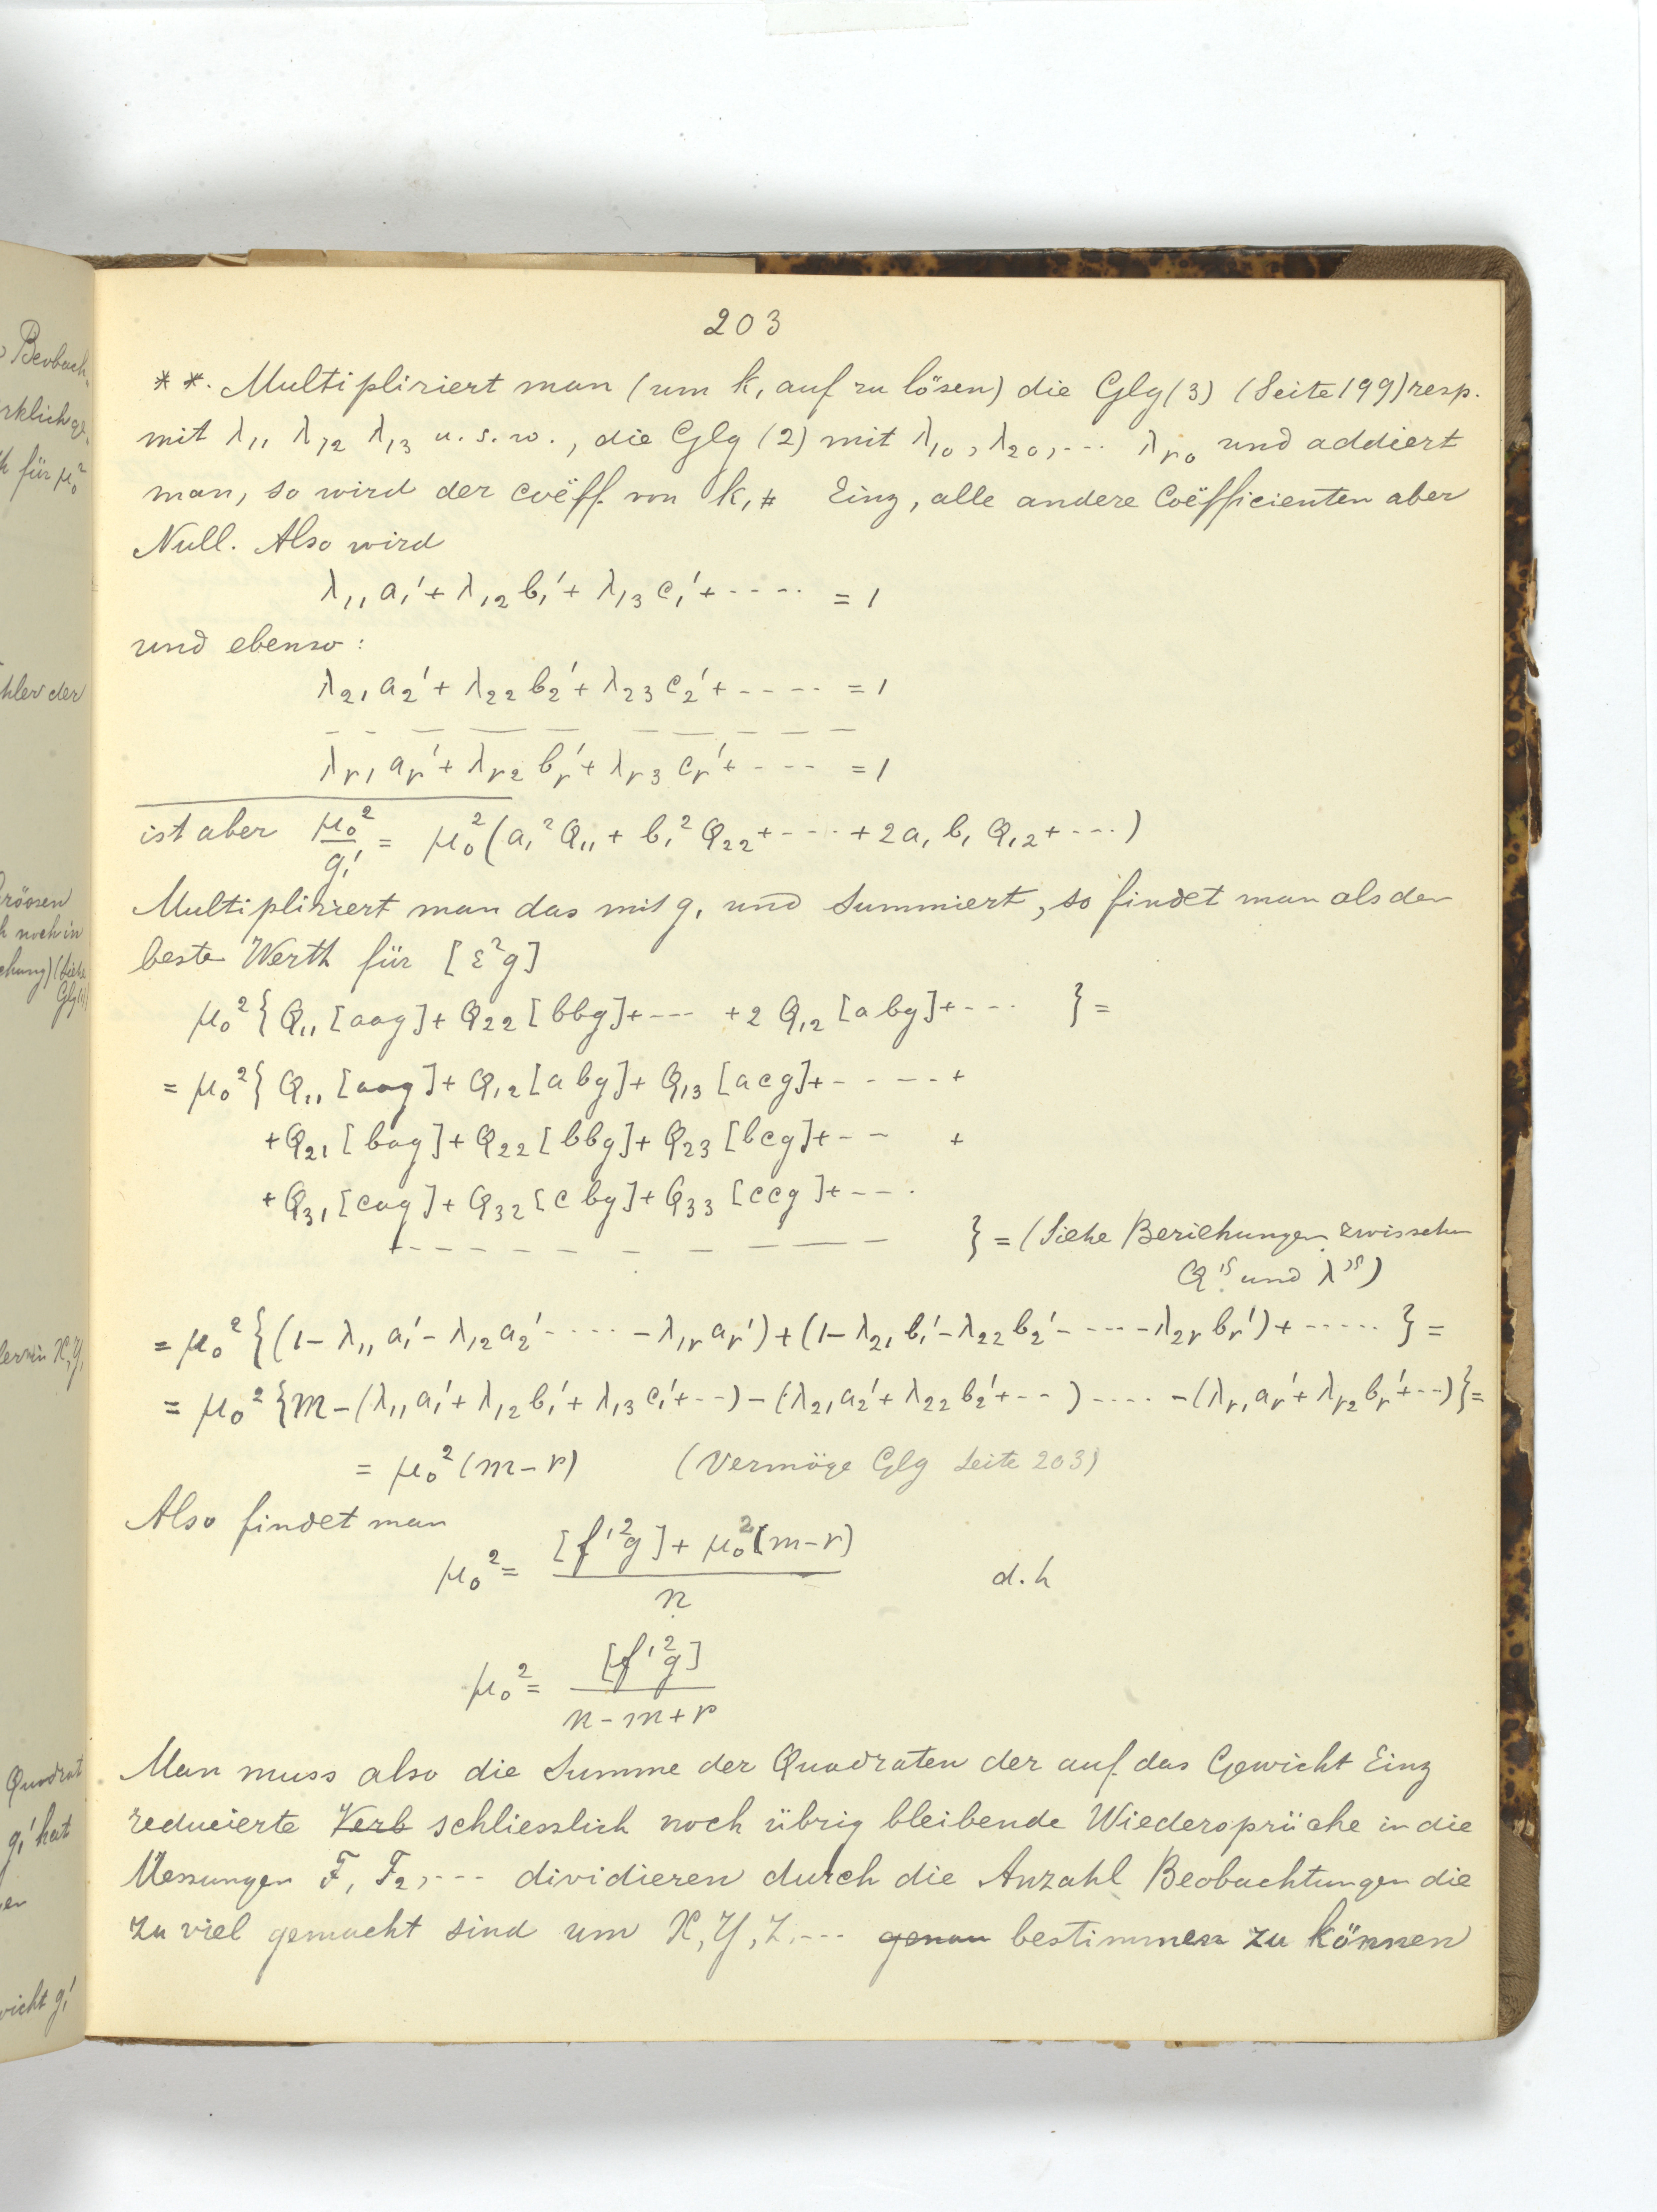 203
* *. Multipliziert man (um k₁ auf zu lösen) die Glg (3) (Seite 199) resp.
mit λ₁₁ λ₁₂ λ₁₃ u. s. w., die Glg (2) mit λ₁₀, λ₂₀, ... λᵣ₀ und addiert
man, so wird der coëff. von k₁ Einz, alle andere Coëfficienten aber
Null. Also wird
λ₁₁ a₁' + λ₁₂ b₁' + λ₁₃ c₁' + ..... = 1
und ebenso:
λ₂₁ a₂' + λ₂₂ b₂' + λ₂₃ c₂' + ..... = 1
λᵣ₁ aᵣ' + λᵣ₂ bᵣ' + λᵣ₃ cᵣ' + .... = 1
ist aber μ₀²/g₁' = μ₀² (a₁² Q₁₁ + b₁² Q₂₂ + .... + 2a₁ b₁ Q₁₂ + ....)
Multipliziert man das mit g₁ und summiert, so findet man als der
beste Werth für [ε²g]
μ₀² { Q₁₁ [aag] + Q₂₂ [bbg] + --- + 2 Q₁₂ [abg] + .... } =
= μ₀² { Q₁₁ [aag] + Q₁₂ [abg] + Q₁₃ [acg] + ..... +
+ Q₂₁ [bag] + Q₂₂ [bbg] + Q₂₃ [bcg] + -- +
+ Q₃₁ [cag] + Q₃₂ [cbg] + Q₃₃ [ccg] + --.
+ - - - - - - - - - } = (Siehe Beziehungen zwischen
Q'ˢ und λ'ˢ)
= μ₀² { (1 - λ₁₁ a₁' - λ₁₂ a₂' - .... - λ₁ᵣ aᵣ') + (1 - λ₂₁ b₁' - λ₂₂ b₂' - .... - λ₂ᵣ bᵣ') + ..... } =
= μ₀² { m - (λ₁₁ a₁' + λ₁₂ b₁' + λ₁₃ c₁' + ...) - (λ₂₁ a₂' + λ₂₂ b₂' + --) .... - (λᵣ₁ aᵣ' + λᵣ₂ bᵣ' + --) } =
= μ₀² (m - r) (Vermöge Glg Seite 203)
Also findet man
μ₀² = ([f'²g] + μ₀² (m - r)) / n d. h
μ₀² = [f'²g] / (n - m + r)
Man muss also die Summe der Quadraten der auf das Gewicht Einz
reducierte Verb schliesslich noch übrig bleibende Wiedersprüche in die
Messungen F₁ F₂, --- dividieren durch die Anzahl Beobachtungen die
zu viel gemacht sind um X, Y, Z, --- genau bestimmen zu können